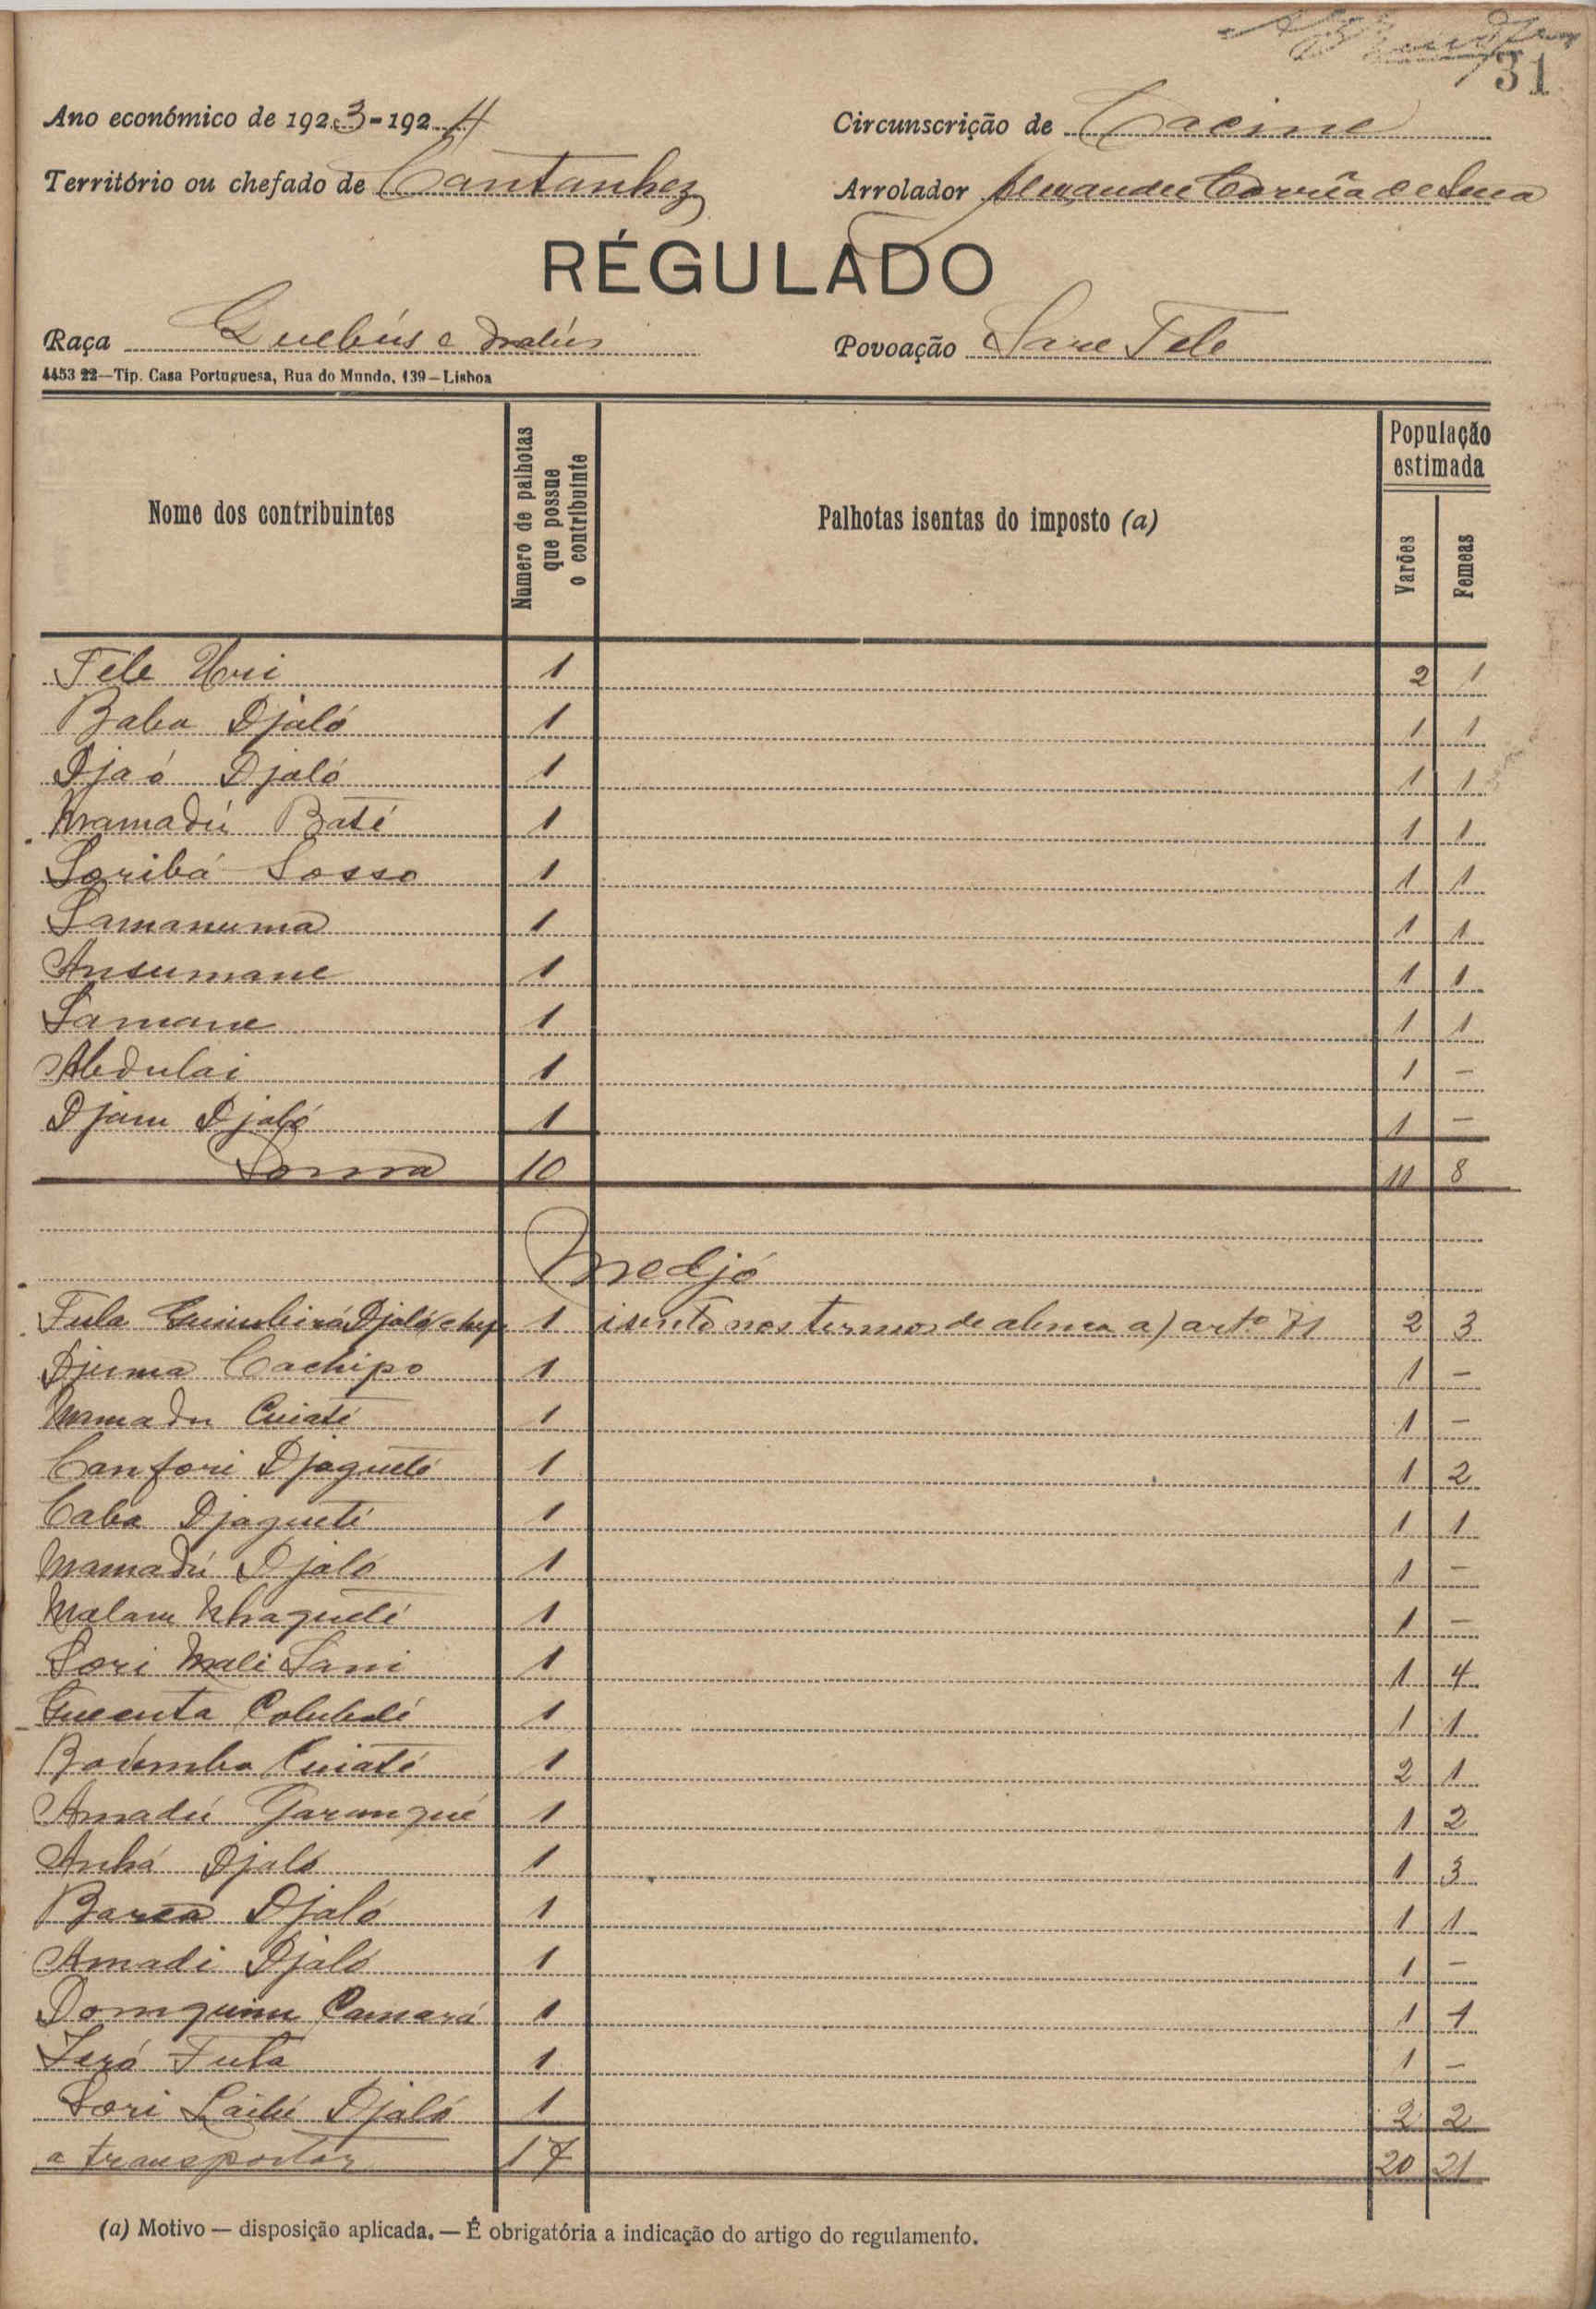 31
Ano económico de 1923-1924 Circunscrição de Cacine
Território ou chefado de Cantanhez Arrolador Alexandre Corrêa de
RÉGULADO
Raça e Povoação Sare Tele
4453 22—Tip. Casa Portuguesa, Rua do Mundo, 139—Lisboa
Nome dos contribuintes Numero de palhotas que possue o contribuinte Palhotas isentas do imposto (a) População estimada Varões Femeas
Tele Uri 1 2 1
Baba Djaló 1 1 1
Djaó Djaló 1 1 1
Mamadú Baté 1 1 1
Soribá Sosso 1 1 1
Samanuma 1 1 1
Ansumane 1 1 1
Samane 1 1 1
Abdulai 1 1 -
Djam Djaló 1 1 -
Soma 10 11 8
Medjó
Fula Djaló chefe 1 isento nos termos de alinea a) artº 71 2 3
Djuma Cachipo 1 1 -
Mamadu Cuiaté 1 1 -
Canfori Djogueté 1 1 2
Caba Djagueté 1 1 1
Mamadú Djaló 1 1 -
Malam 1 1 -
Sori Mali Sani 1 1 4
1 1 1
Cuiaté 1 2 1
Amadú 1 1 2
Anhá Djaló 1 1 3
Djaló 1 1 1
Amadi Djaló 1 1 -
Camará 1 1 1
Ieró Fula 1 1 -
Sori Laibé Djaló 1 2 2
a transportar 17 20 21
(a) Motivo — disposição aplicada. — É obrigatória a indicação do artigo do regulamento.